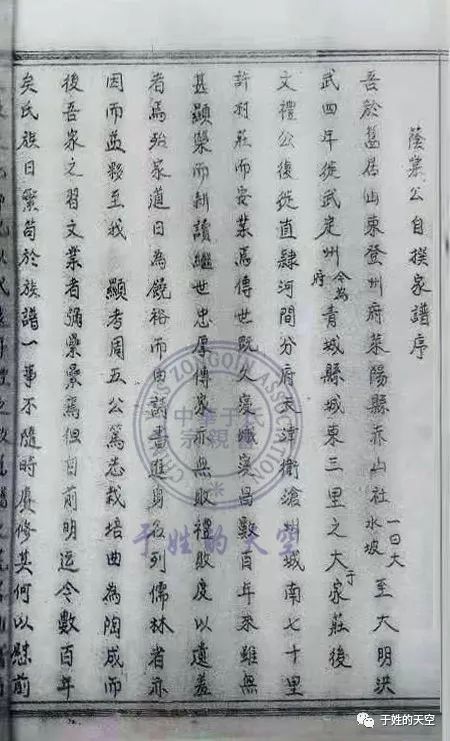 蔭棠公自撰家譜序
吾於舊居山東登州府萊陽縣赤山社水坡一曰大至大明洪
武四年徙武定州今為府青城縣城東三里之大于家莊後
文禮公後徙直隸河間分府天津衛滄州城南七十里
許羽莊而安業焉傳世既久慶熾寖昌數百年來雖無
甚顯榮而耕讀繼世忠厚傳家亦無敗禮敗度以遺羞
者焉殆家道日為饒裕而由詩書進身名列儒林者亦
因而益夥至我 顯考周五公篤志栽培曲為陶成而
後吾家之習文業者彌焉但自前明迄今數百年
矣氏族日繁苟於族譜一事不隨時賡修其何以慰前
中華于氏
宗親會
于姓的天空
于姓的天空